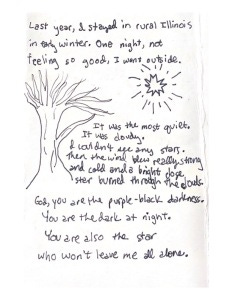 Last year, I stayed in rural Illinois
in early winter. One night, not
feeling so good, I went outside.
It was the most quiet.
It was cloudy.
I couldn't see any stars.
then the wind blew really strong
and cold and a bright close
star burned through the clouds.
God, you are the purple-black darkness.
You are the dark at night.
You are also the star
who won't leave me all alone.